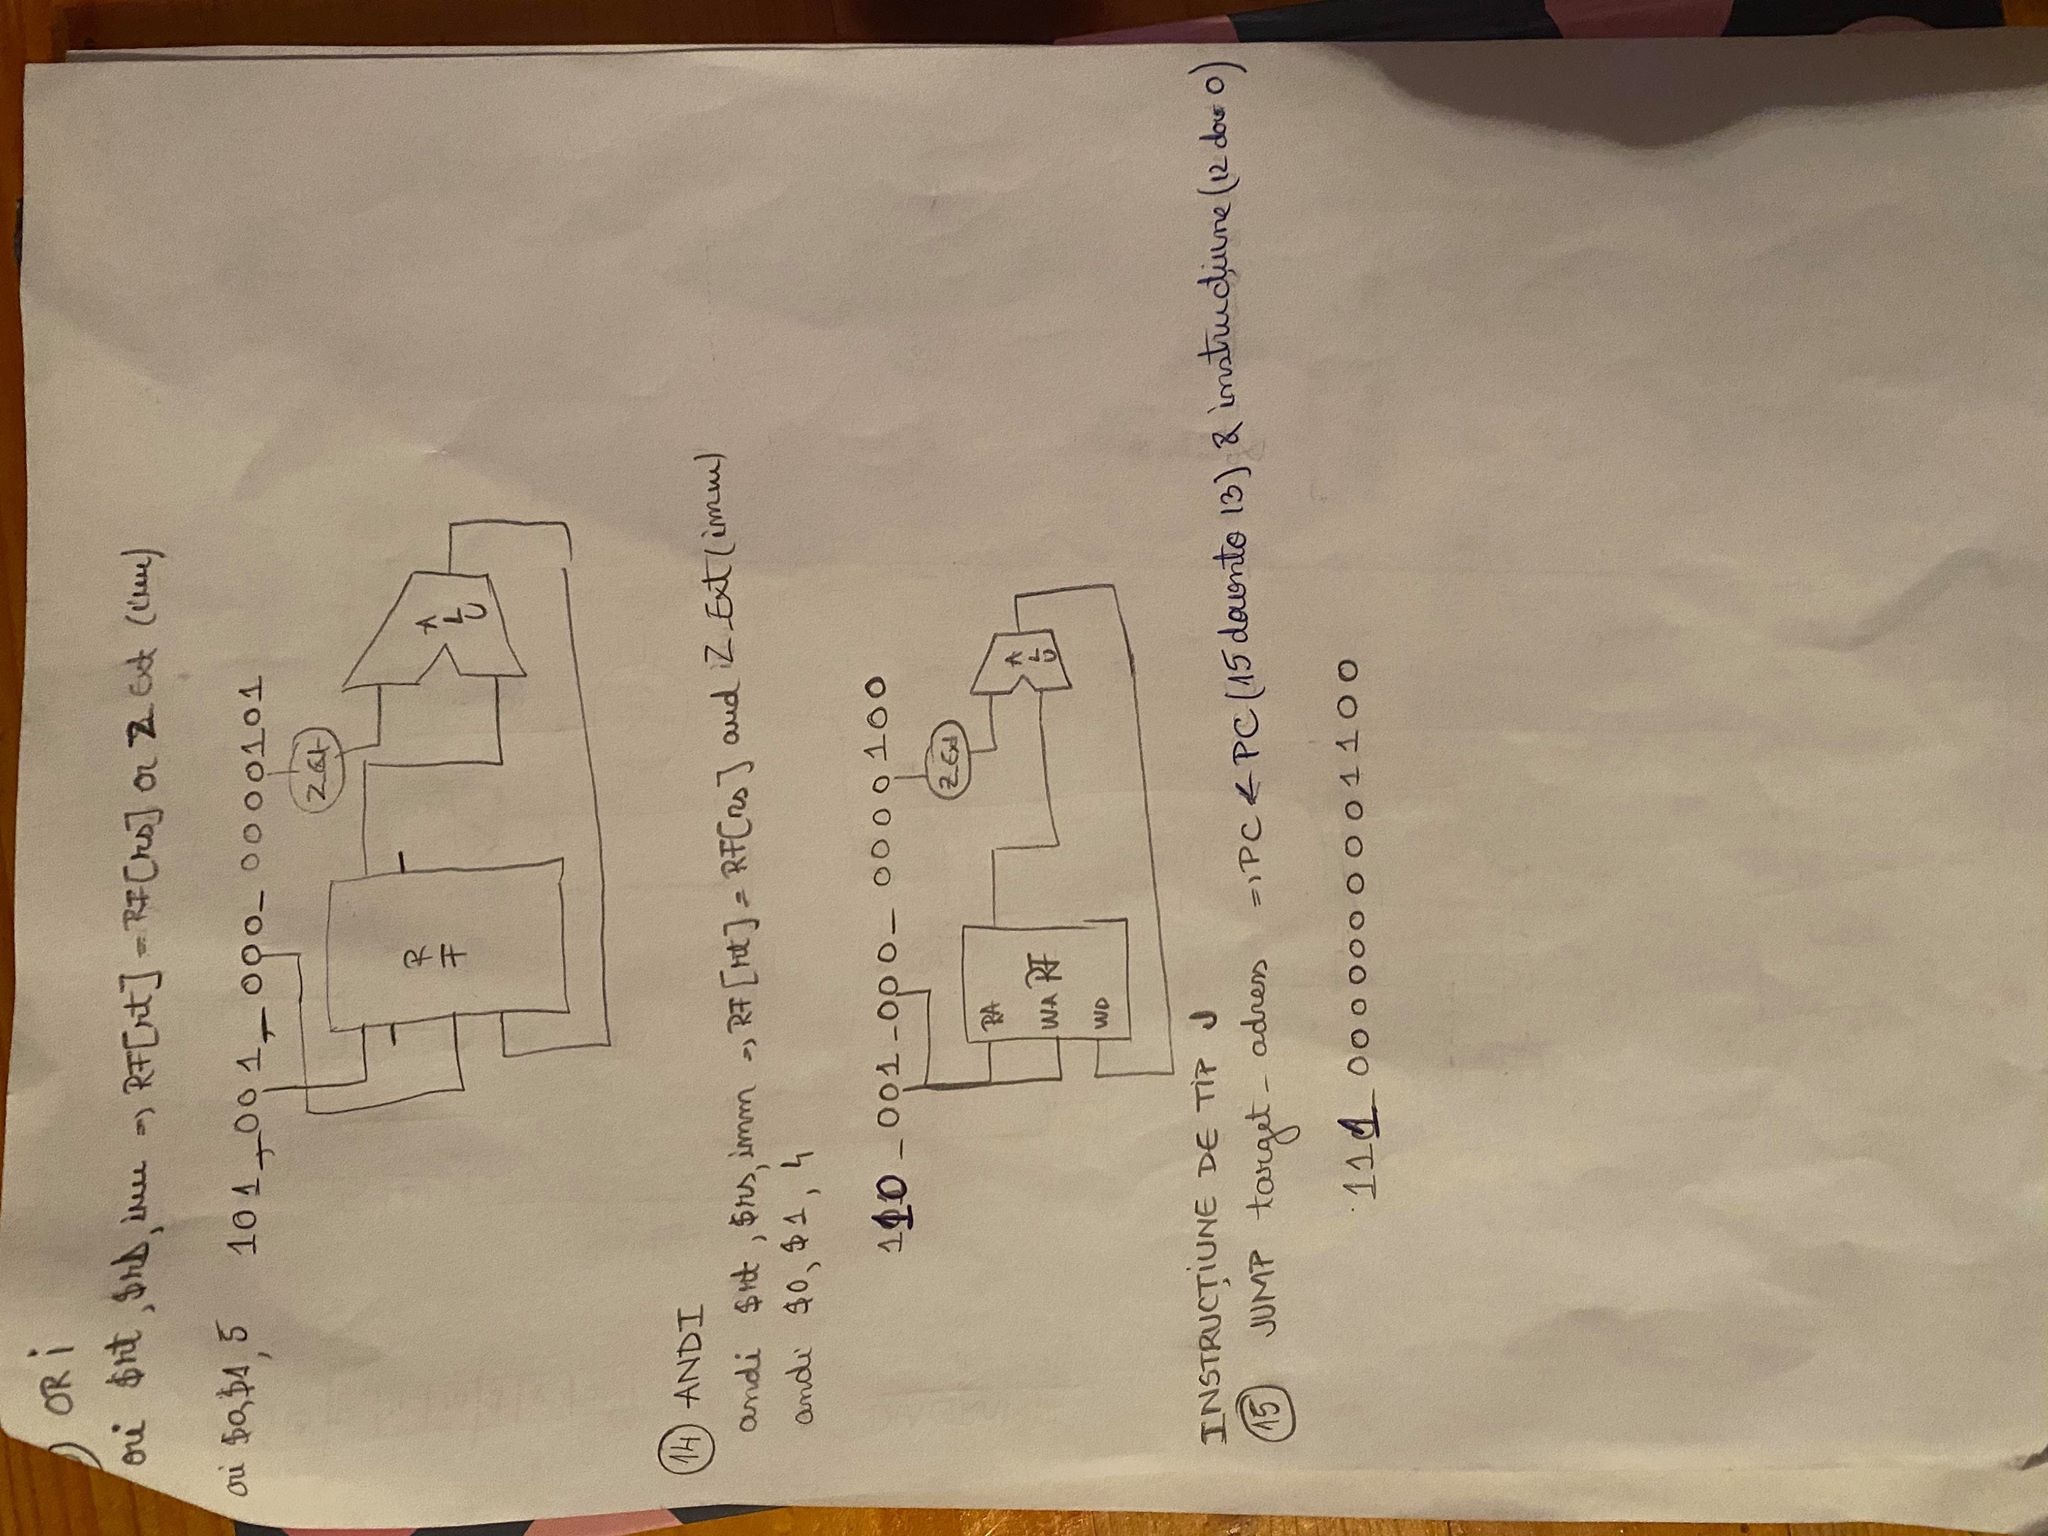 ) ORi
ori $rt, $rs, imm => RF[rt] = RF[rs] or Z Ext (imm)
ori $0,$1,5 101_001_000_0000101
ZExt
RF
ALU
14 ANDI
andi $rt, $rs, imm => RF[rt] = RF[rs] and Z Ext (imm)
andi $0, $1, 4
110_001_000_0000100
ZExt
RA
WA RF
WD
ALU
INSTRUCȚIUNE DE TIP J
15 JUMP target_adress => PC ← PC (15 downto 13) & instrucțiune (12 dow 0)
111_0000000001100